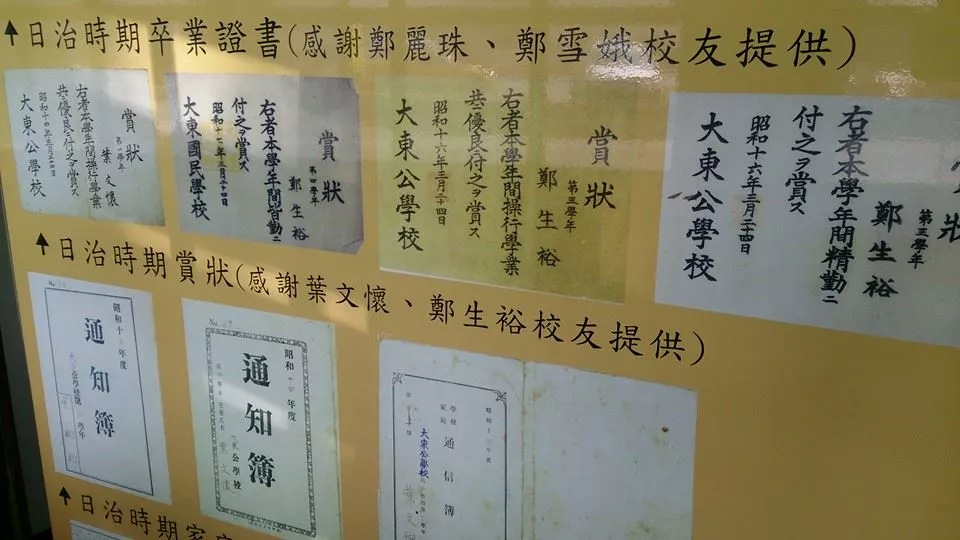 ↑日治時期卒業證書(感謝鄭麗珠、鄭雪娥校友提供)
賞狀
第一學年
葉文懷
右者本學年間操行學業
共ニ優良ニ付之ヲ賞ス
大東公學校
賞狀
第四學年
鄭生裕
右者本學年間皆勤ニ
付之ヲ賞ス
大東國民學校
賞狀
第三學年
鄭生裕
右者本學年間操行學業
共ニ優良ニ付之ヲ賞ス
昭和十六年三月二十四日
大東公學校
狀
第三學年
鄭生裕
右者本學年間精勤ニ
付之ヲ賞ス
昭和十六年三月二十四日
大東公學校
↑日治時期賞狀(感謝葉文懷、鄭生裕校友提供)
No.
昭和十 年度
通知簿
公學校
No.
昭和十 年度
通知簿
公學校
昭和十 年度
學校
家庭
通信簿
大東公學校
↑日治時期家